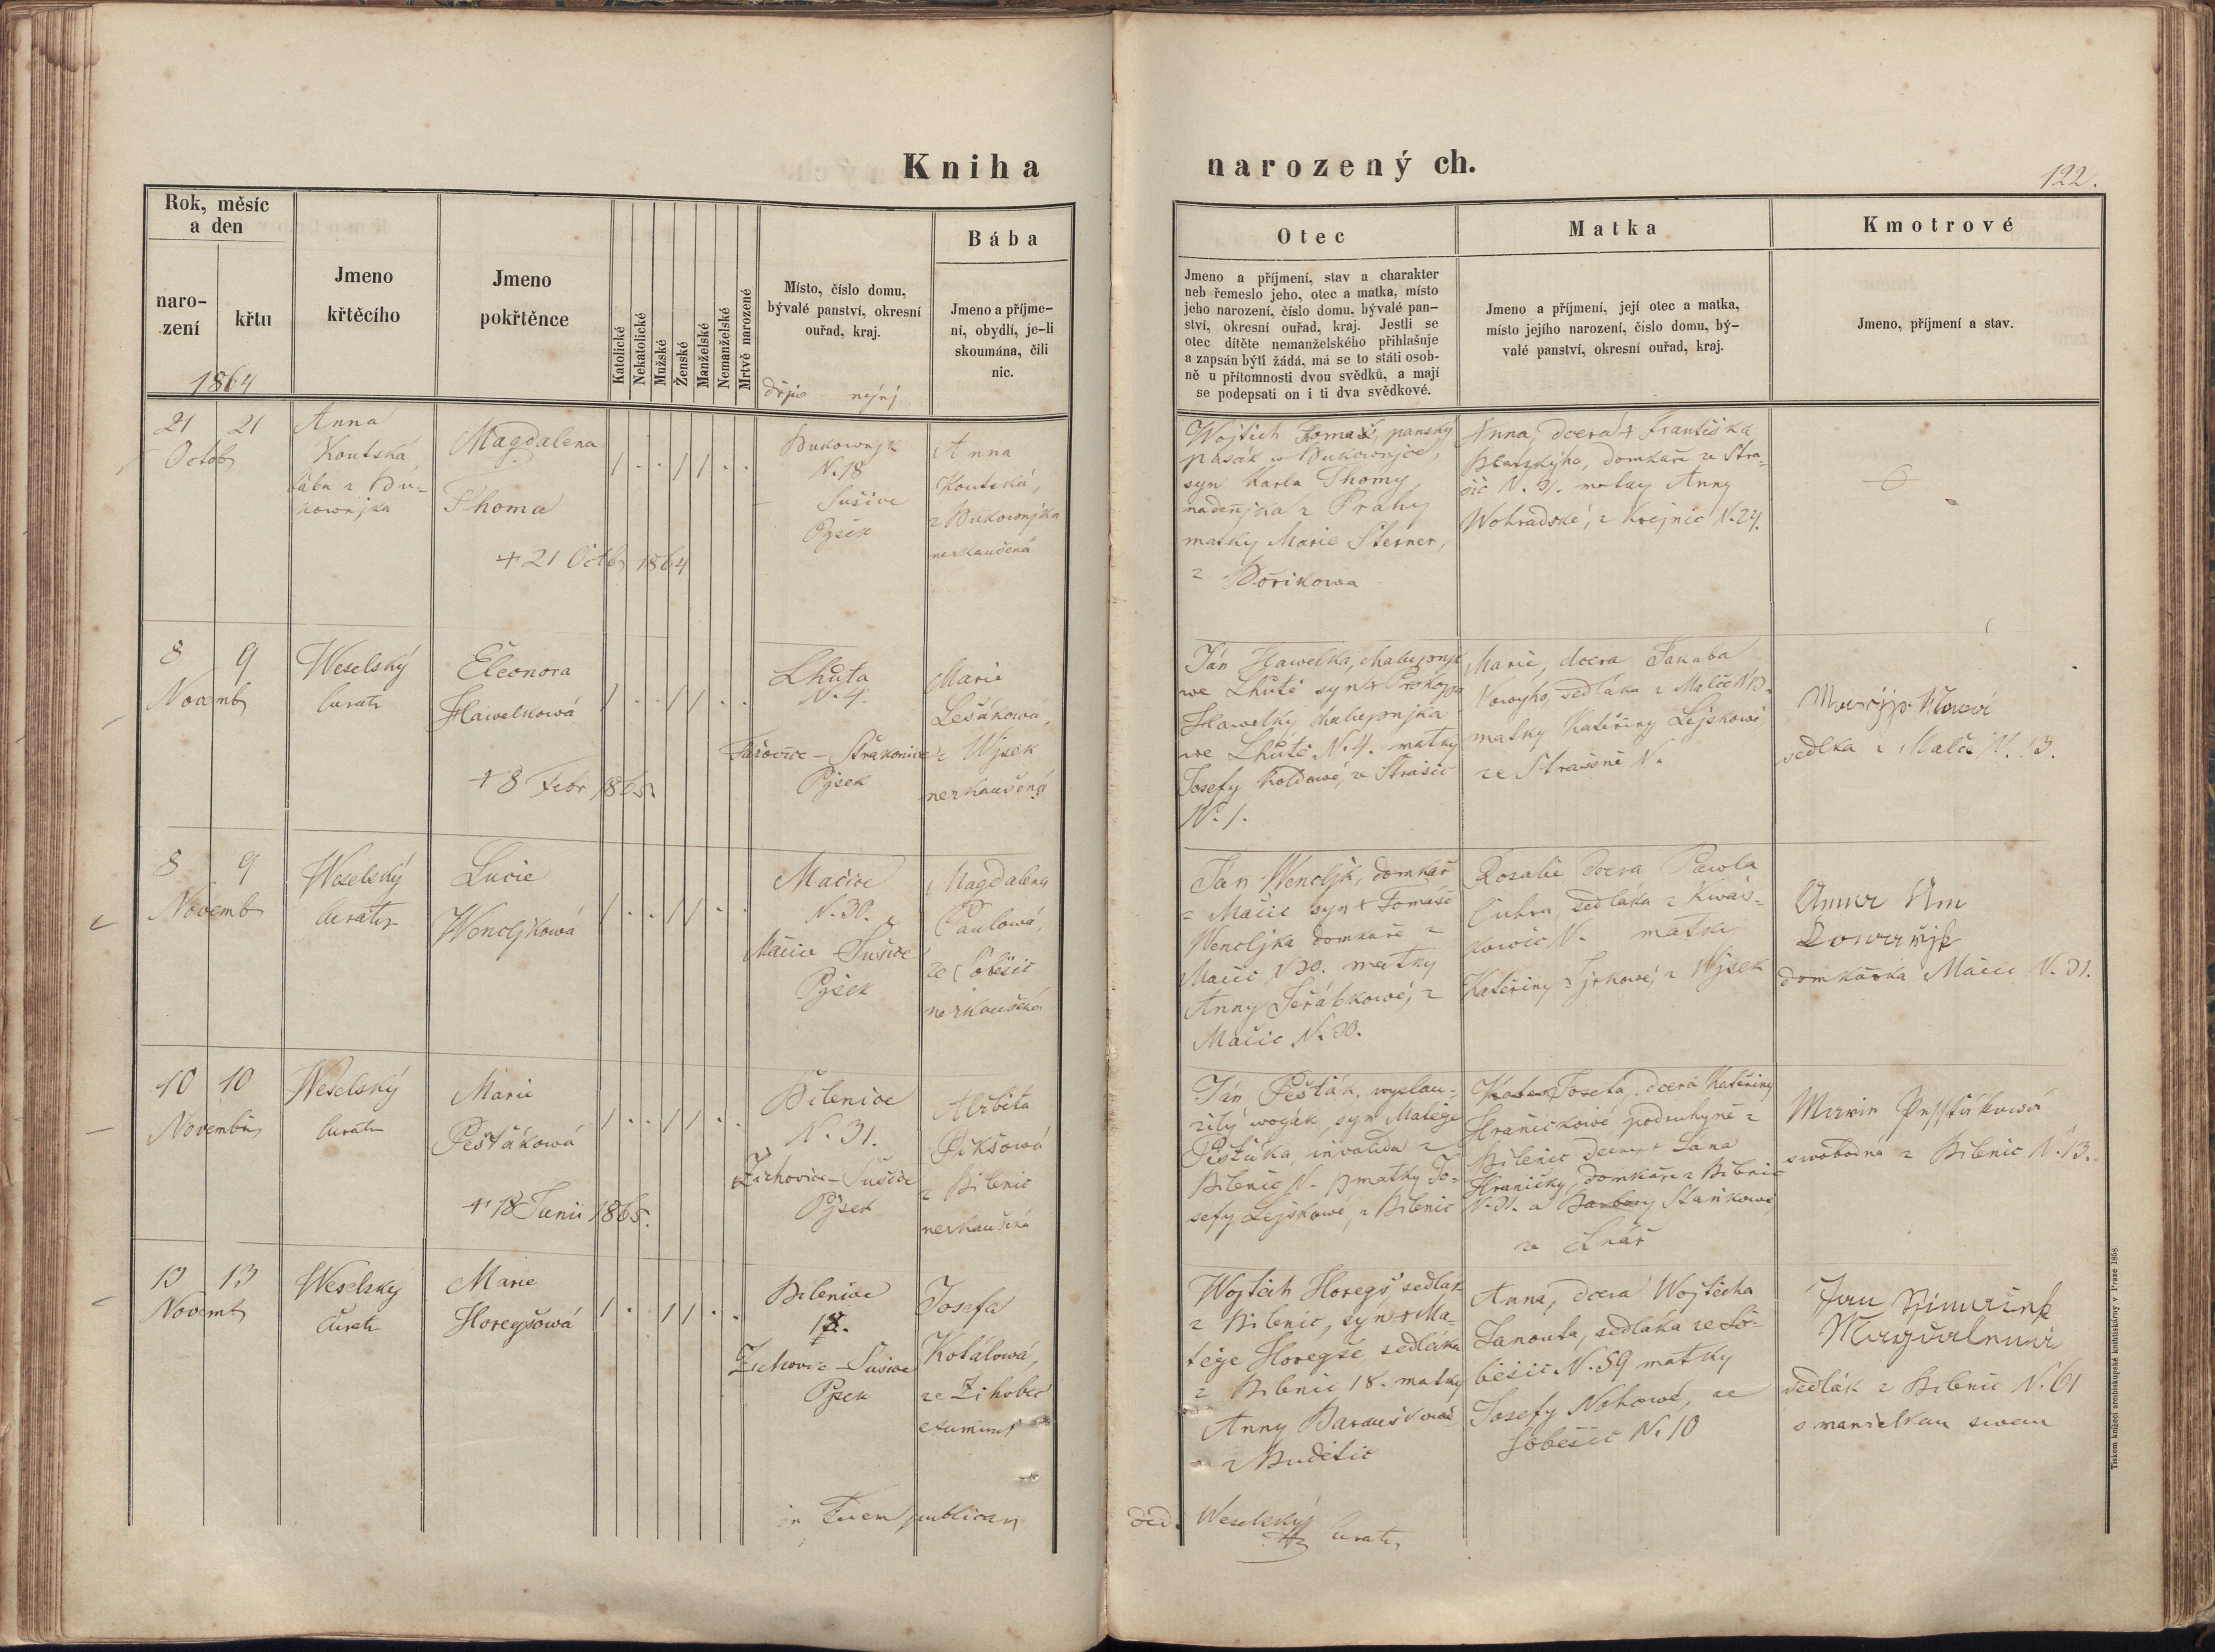 Kniha
narozený ch.
122.
Rok, měsíc
a den
naro-
zení
křtu
1864
Jmeno
křtěcího
Jmeno
pokřtěnce
Katolické
Nekatolické
Mužské
Ženské
Manželské
Nemanželské
Mrtvě narozené
Místo, číslo domu,
bývalé panství, okresní
ouřad, kraj.
dřjw nynj
Bába
Jmeno a příjme-
ní, obydlí, je-li
skoumána, čili
nic.
Otec
Jmeno a příjmení, stav a charakter
neb řemeslo jeho, otec a matka, místo
jeho narození, číslo domu, bývalé pan-
ství, okresní ouřad, kraj. Jestli se
otec dítěte nemanželského přihlašuje
a zapsán býti žádá, má se to státi osob-
ně u přítomnosti dvou svědků, a mají
se podepsati on i ti dva svědkové.
Matka
Jmeno a příjmení, její otec a matka,
místo jejího narození, číslo domu, bý-
valé panství, okresní ouřad, kraj.
Kmotrové
Jmeno, příjmení a stav.
21 21
Octob
Anna
Koutská
bába z Bu-
kownjka
Magdalena
Thoma
+ 21 Octb 1864
Bukownjk
N. 18
Sušice
Pjsek
Anna
Koutská,
z Bukownjka
nezkaušená
Wojtěch Tomaš, panský
pasák w Bukownjce,
syn Karla Thomy
nadenjka z Prahy
matky Marie Sterner,
z Bořikowa
Anna, dcera + Františka
domkaře ze Stra-
šic N. 31. matky Anny
Wohradské, z Krejnic N. 24.
8 9
Novemb
Weselský
Curatr
Eleonora
Hawelkowá
+ 8 Febr 1865.
Lhůta
N. 4.
Strakonice
Pjsek
Marie
Lešákowá,
z Wjsek
nezkaušená
Ján Hawelka, chalupnjk
we Lhůtě syn + Prokopa
Hawelky chalupnjka
we Lhůtě N. 4. matky
Josefy ze Strašic
N. 1.
Marie, dcera Jakuba
Nowyho, sedláka z Malče N 13.
matky Kateřiny Lejskowé
ze N.
sedlka z Malče N. 13.
8 9
Novemb
Weselský
Curatr
Lucie
Wencljkowá
Mačice
N. 30.
Mačice Sušice
Pjsek
Magdalena
Paulowá,
ze Soběšic
nezkaušená
Jan Wencljk, domkař
z Mačic syn + Tomáše
Wencljka domkaře z
Mačic N 30. matky
Anny Jeřábkowé, z
Mačic N. 30.
Rosalie dcera Pawla
Cuhra, sedláka z Kwáš-
kowic N. matky
Kateřiny z Wjsek
Anna
domkařka Mačice N. 31.
10 10
Novembr
Weselský
Curatr
Marie
Pešťákowá
+ 18 Junii 1865.
Bilenice
N. 31.
Žichowice - Sušice
Pjsek
Alžběta
Dikšowá
z Bilenic
nezkaušená
Ján Pešťák, wyslau-
žilý woják, syn Matěje
Pešťáka, invalida z
Bilenic N. matky Jo-
sefy Lejskowé, z Bilenic
Josefa, dcera Kateřiny
Hraničkowé podruhyně z
Bilenic dcery + Jána
Hraničky, domkáře z Bilenic
N. 31. a Barbory Staňkowé
ze Lnář
Marie Pešťákowá
swobodná z Bilenic N. 13.
13 13
Novemb
Weselsky
Curatr
Marie
Horegšowá
Bilenice
18.
Žichovic - Sušice
Pjsek
Josefa
Kotálowá,
ze Žihobec
Wojtěch Horegš sedlák
z Bilenic, syn + Ma-
těje Horegše sedláka
z Bilenic 18. matky
Anny Barauškowé
z Budětic
Anna, dcera Wojtěcha
Janouta, sedláka ze So-
běšic N. 59 matky
Josefy Nohowé, ze
Soběšic N. 10
Jan
Magdalena
sedlák z Bilenic N. 61
s manželkau swau
in Fidem publicam
Weselský
Curatr,
Tiskem knížecí arcibiskupské knihtiskárny v Praze 1858.